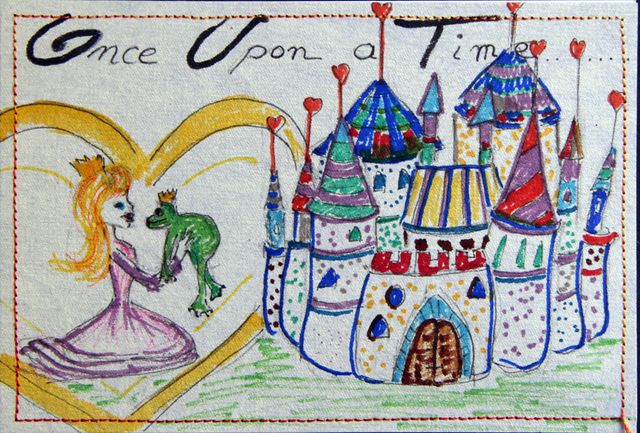 Once Upon a Time........